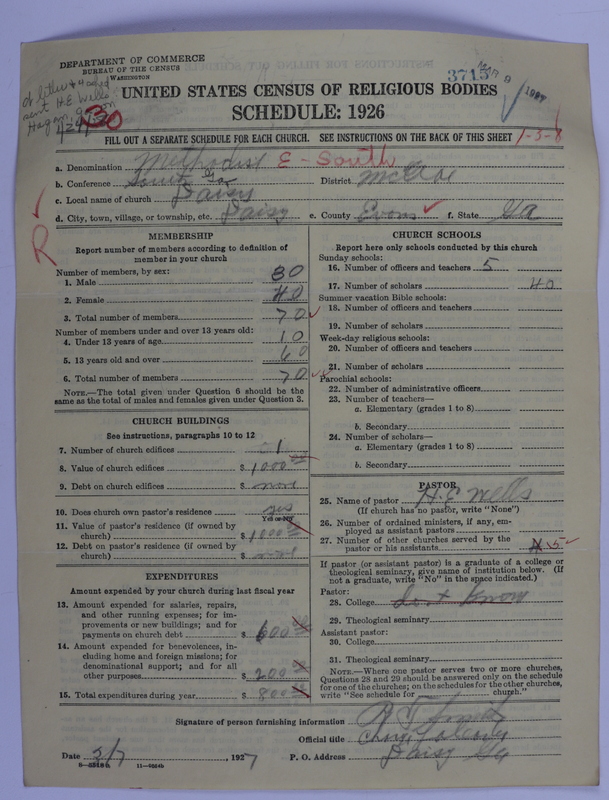 DEPARTMENT OF COMMERCE
BUREAU OF THE CENSUS
WASHINGTON
3715
MAR 9 1927
sent H.E. Wells
30
UNITED STATES CENSUS OF RELIGIOUS BODIES
SCHEDULE: 1926
FILL OUT A SEPARATE SCHEDULE FOR EACH CHURCH. SEE INSTRUCTIONS ON THE BACK OF THIS SHEET
1-3-8
a. Denomination Methodist E-South
b. Conference South Ga District McRae
c. Local name of church Daisy
d. City, town, village, or township, etc. Daisy e. County Evans f. State Ga
R
MEMBERSHIP
Report number of members according to definition of
member in your church
Number of members, by sex:
1. Male 30
2. Female 40
3. Total number of members 70
Number of members under and over 13 years old:
4. Under 13 years of age 10
5. 13 years old and over 60
6. Total number of members 70
NOTE.—The total given under Question 6 should be the
same as the total of males and females given under Question 3.
CHURCH BUILDINGS
See instructions, paragraphs 10 to 12
7. Number of church edifices 1
8. Value of church edifices $ 1000
9. Debt on church edifices $ none
10. Does church own pastor's residence yes
Yes or No
11. Value of pastor's residence (if owned by
church) $ 1000
12. Debt on pastor's residence (if owned by
church) $ none
EXPENDITURES
Amount expended by your church during last fiscal year
13. Amount expended for salaries, repairs,
and other running expenses; for im-
provements or new buildings; and for
payments on church debt $ 600
14. Amount expended for benevolences, in-
cluding home and foreign missions; for
denominational support; and for all
other purposes $ 200
15. Total expenditures during year $ 800
CHURCH SCHOOLS
Report here only schools conducted by this church
Sunday schools:
16. Number of officers and teachers 5
17. Number of scholars 40
Summer vacation Bible schools:
18. Number of officers and teachers
19. Number of scholars
Week-day religious schools:
20. Number of officers and teachers
21. Number of scholars
Parochial schools:
22. Number of administrative officers
23. Number of teachers—
a. Elementary (grades 1 to 8)
b. Secondary
24. Number of scholars—
a. Elementary (grades 1 to 8)
b. Secondary
PASTOR
25. Name of pastor H. E Wells
(If church has no pastor, write "None")
26. Number of ordained ministers, if any, em-
ployed as assistant pastors
27. Number of other churches served by the
pastor or his assistants 5
If pastor (or assistant pastor) is a graduate of a college or
theological seminary, give name of institution below. (If
not a graduate, write "No" in the space indicated.)
Pastor:
28. College Dont Know
29. Theological seminary
Assistant pastor:
30. College
31. Theological seminary
NOTE.—Where one pastor serves two or more churches,
Questions 28 and 29 should be answered only on the schedule
for one of the churches; on the schedules for the other churches,
write "See schedule for church."
Signature of person furnishing information
Official title
Date 2/7, 1927 P. O. Address Daisy Ga